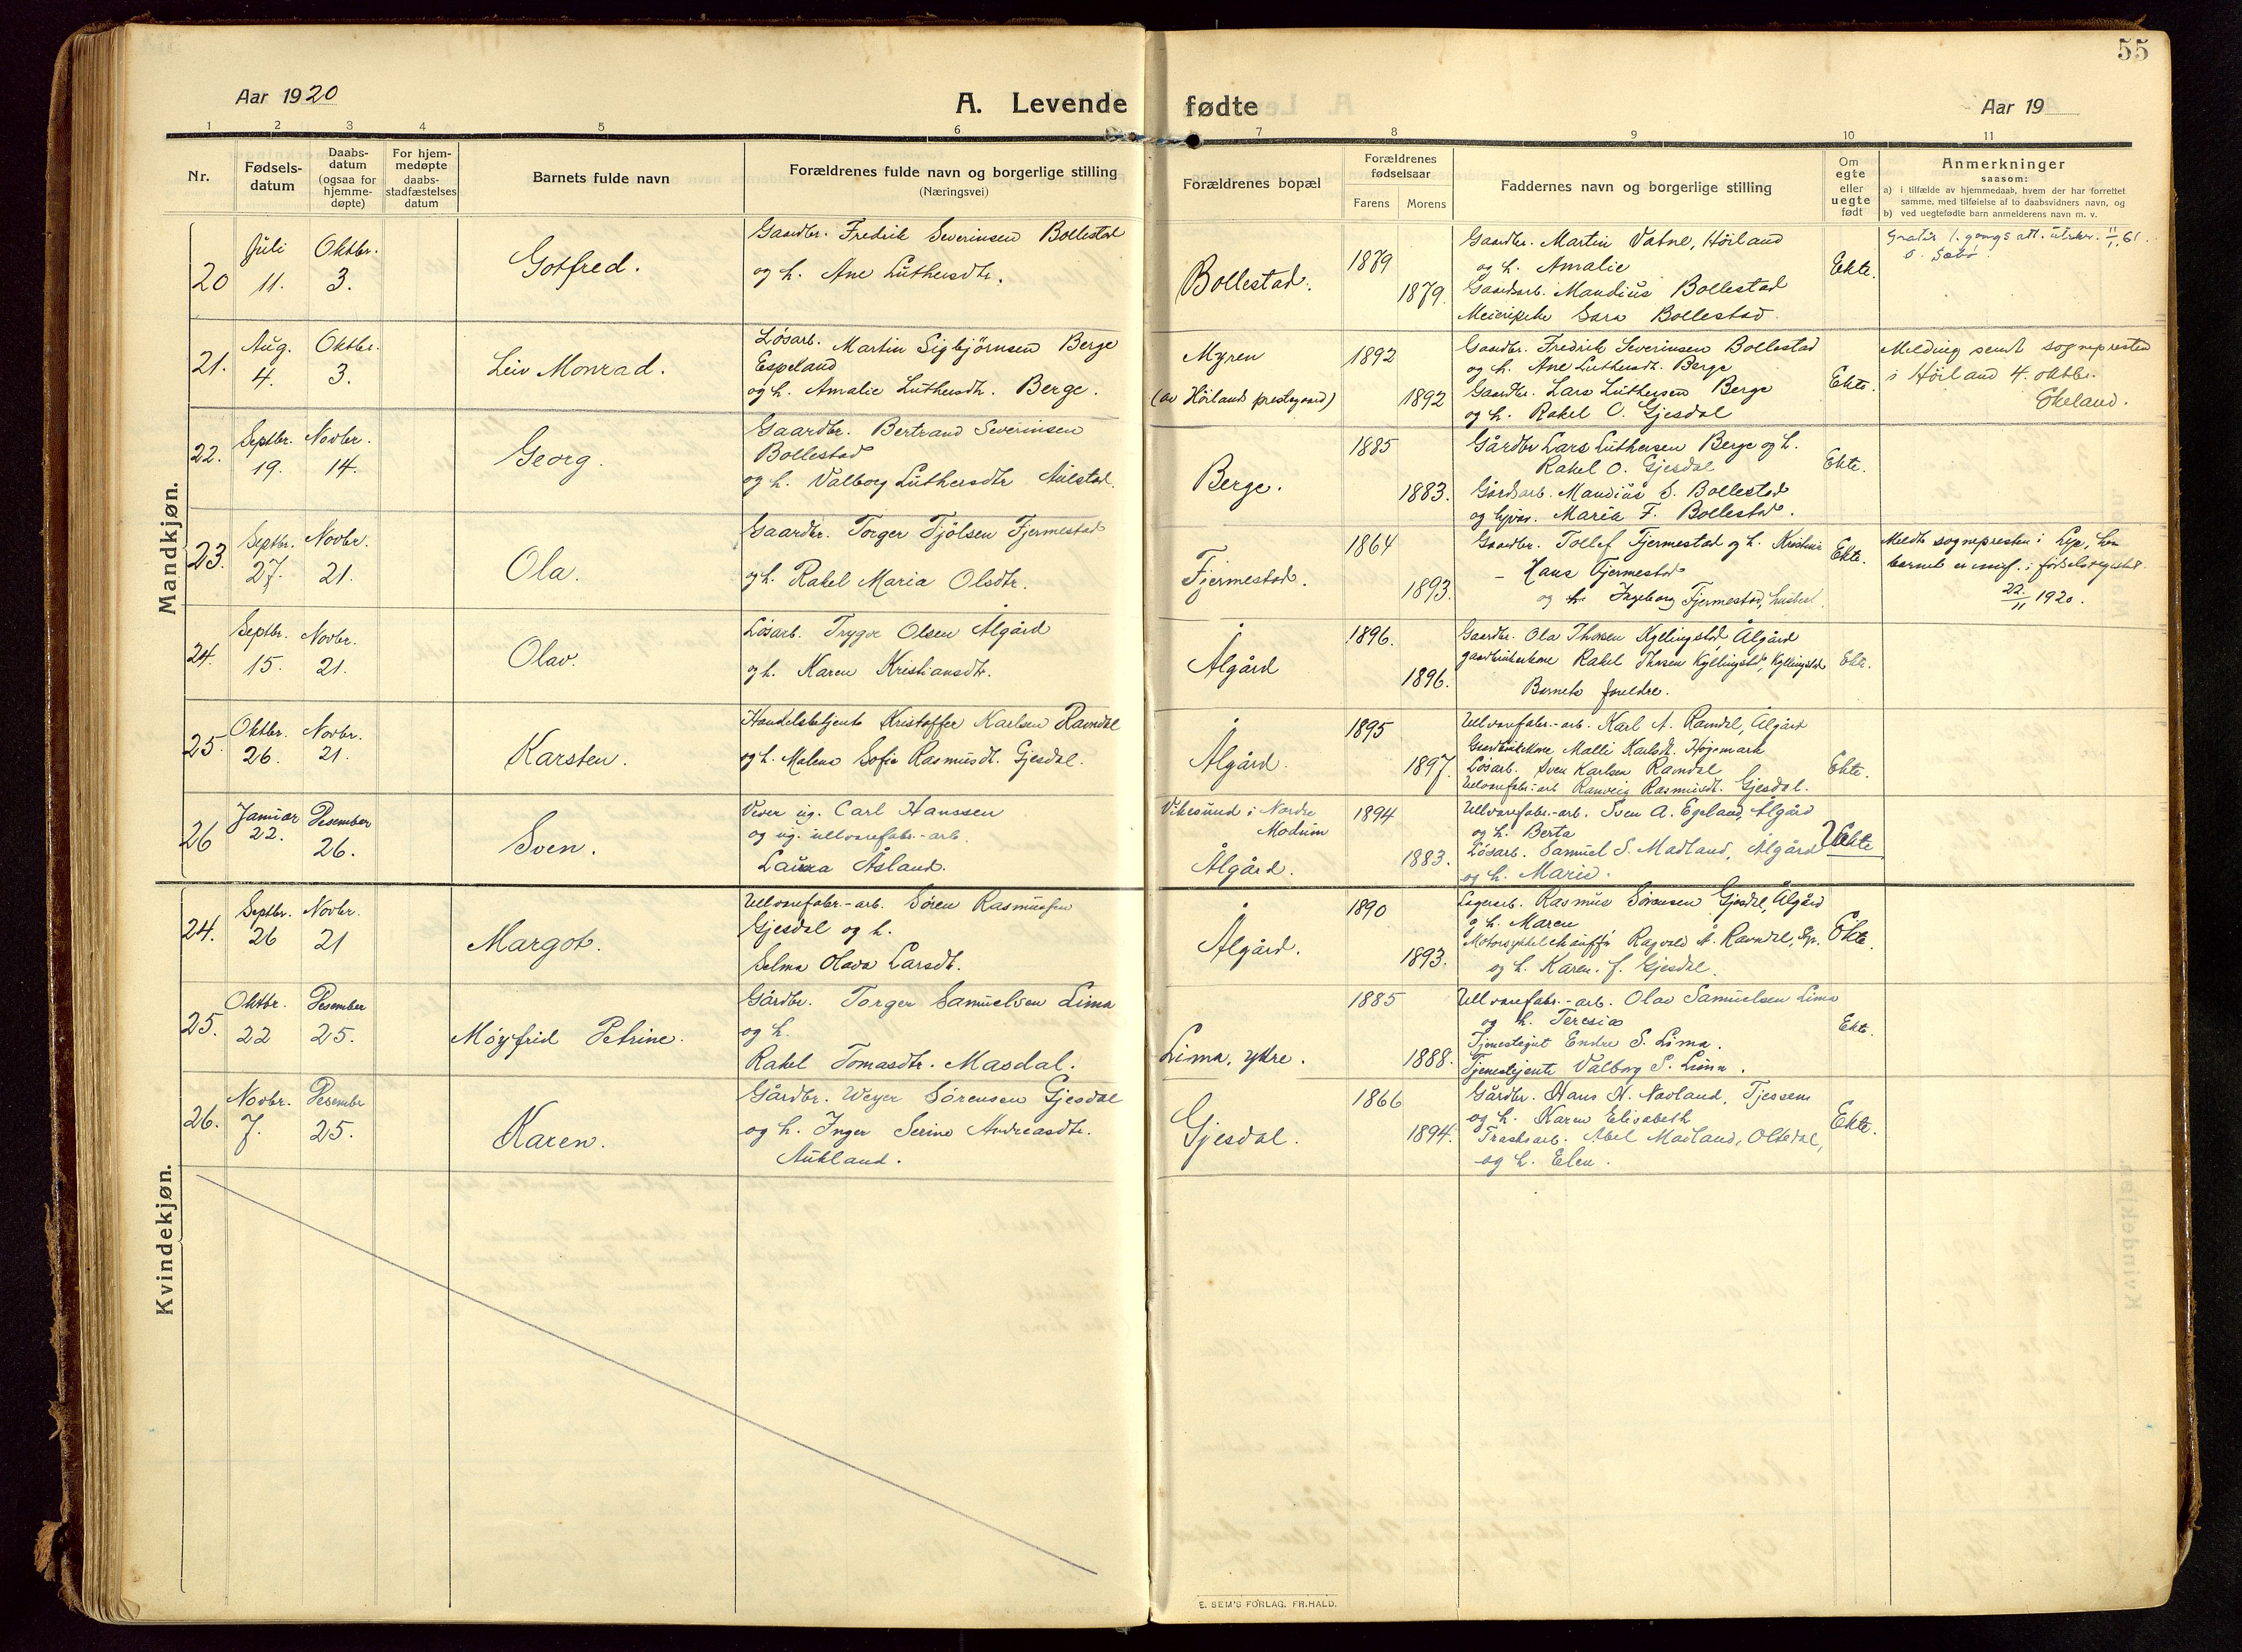 55
Aar 1920
A. Levende
fødte
Aar 19
1 2 3 4 5 6 7 8 9 10 11
Nr.
Fødsels-
datum
Daabs-
datum
(ogsaa for
hjemme-
døpte)
For hjem-
medøpte
daabs-
stadfæstelses
datum
Barnets fulde navn
Forældrenes fulde navn og borgerlige stilling
(Næringsvei)
Forældrenes bopæl
Forældrenes
fødselsaar
Farens Morens
Faddernes navn og borgerlige stilling
Om
egte
eller
uegte
født
Anmerkninger
saasom:
a) i tilfælde av hjemmedaab, hvem der har forrettet
samme, med tilføielse af to daabsvidners navn, og
b) ved uegtefødte barn anmelderens navn m. v.
Mandkjøn.
20
Juli
11.
Oktbr.
3.
Gotfred.
Gaardbr. Fredrik Severinsen Bollestad
og h. Ane Luthersdtr.
Bollestad.
1879
1879.
Gaardbr. Martin Vatne, Höiland
og h. Amalie
Gaardsarb. Mandius Bollestad
Meieripike Sara Bollestad.
Ekte.
Gratis 1. gangs att. utskr. 11/1 61.
21.
Aug.
4.
Oktbr.
3.
Leiv Monrad.
Løsarb. Martin Sigbjørnsen Berge
Espeland
og h. Amalie Luthersdtr. Berge.
Myren
(av Höilands prestegaard)
1892
1892
Gaardbr. Fredrik Severinsen Bollestad
og h. Ane Luthersdt. Berge
Gaardbr. Lars Luthersen Berge
og h. Rakel O. Gjesdal
Ekte.
Melding sendt sognepresten
i Höiland 4. oktbr.
Ekeland.
22.
Septbr.
19.
Novbr.
14.
Georg.
Gaardbr. Bertrand Severinsen
Bollestad
og h. Valborg Luthersdtr Aulstad.
Berge.
1885
1883.
Gårdbr Lars Luthersen Berge og h.
Rakel O. Gjesdal
Gårdsarb. Mandius S. Bollestad
og Maria F. Bollestad.
Ekte.
23.
Septbr.
27.
Novbr.
21.
Ola.
Gaardbr. Torger Tjölsen Fjermestad
og h. Rakel Maria Olsdtr.
Fjermestad.
1864
1893.
Gaardbr. Tollef Fjermestad og h. Kristine
– Hans Fjermestad
og h. Ingeborg Fjermestad,
Ekte.
Meldt sognepresten i Lye,
barnet er i fødselsregistret.
22/11 1920.
24.
Septbr.
15.
Novbr.
21.
Olav.
Løsarb. Trygve Olsen Ålgård
og h. Karen Kristiansdtr.
Ålgård
1896.
1896.
Gaardbr. Ola Thorsen Kyllingstad, Ålgård
gaardbrukerkone Rakel Thorsen Kyllingstad, Kyllingstad
Barnets foreldre.
Ekte.
25.
Oktbr.
26.
Novbr.
21.
Karsten.
Handelsbetjent Kristoffer Karlsen Ravndal
og h. Malene Sofie Rasmusdt. Gjesdal.
Ålgård.
1895
1897.
Ullvarefabr.-arb. Karl A. Ravndal, Ålgård
Gaardbrukerkone Malli Karlsdt. Høgemark
Løsarb. Sven Karlsen Ravndal
Ullvarefabr.-arb Ranveig Rasmusdt. Gjesdal.
Ekte.
26
Januar
22.
Desember
26.
Sven.
Vever ug. Carl Hanssen
og ug. ullvarefabr.-arb.
Laura Åsland.
Vikesund i Nordre
Modum
Ålgård.
1894
1883.
Ullvarefabr.-arb. Sven A. Egeland, Ålgård
og h. Berta
Løsarb. Samuel S. Madland, Ålgård
og h. Marie.
Uekte
Kvindekjøn.
24.
Septbr.
26
Novbr.
21
Margot.
Ullvarefabr.-arb. Sören Rasmussen
Gjesdal og h.
Selma Olava Larsdt.
Ålgård.
1890
1893.
Lagerarb. Rasmus Sörensen Gjesdal, Ålgård
og h. Maren
Motorsykkelchauffør Ragvald A. Ravndal,
og h. Karen. f. Gjesdal.
Ekte.
25.
Oktbr.
22
Desember
25.
Möyfrid Petrine.
Gårdbr. Torger Samuelsen Lima
og h.
Rakel Tomasdtr. Masdal.
Lima, ytre.
1885
1888.
Ullvarefabr.-arb. Olav Samuelsen Lima
og h. Teresia
Tjenestegut Endre S. Lima.
Tjenestejente Valborg S. Lima.
Ekte.
26.
Novbr.
7.
Desembr
25.
Karen.
Gårdbr. Weyer Sörensen Gjesdal
og h. Inger Serine Andreasdtr.
Aukland.
Gjesdal.
1866
1894.
Gårdbr. Hans H. Navland, Tjessem
og h. Karen Elisabeth
Abel Madland, Oltedal,
og h. Elen.
Ekte.
E. SEM'S FORLAG, FR.HALD.